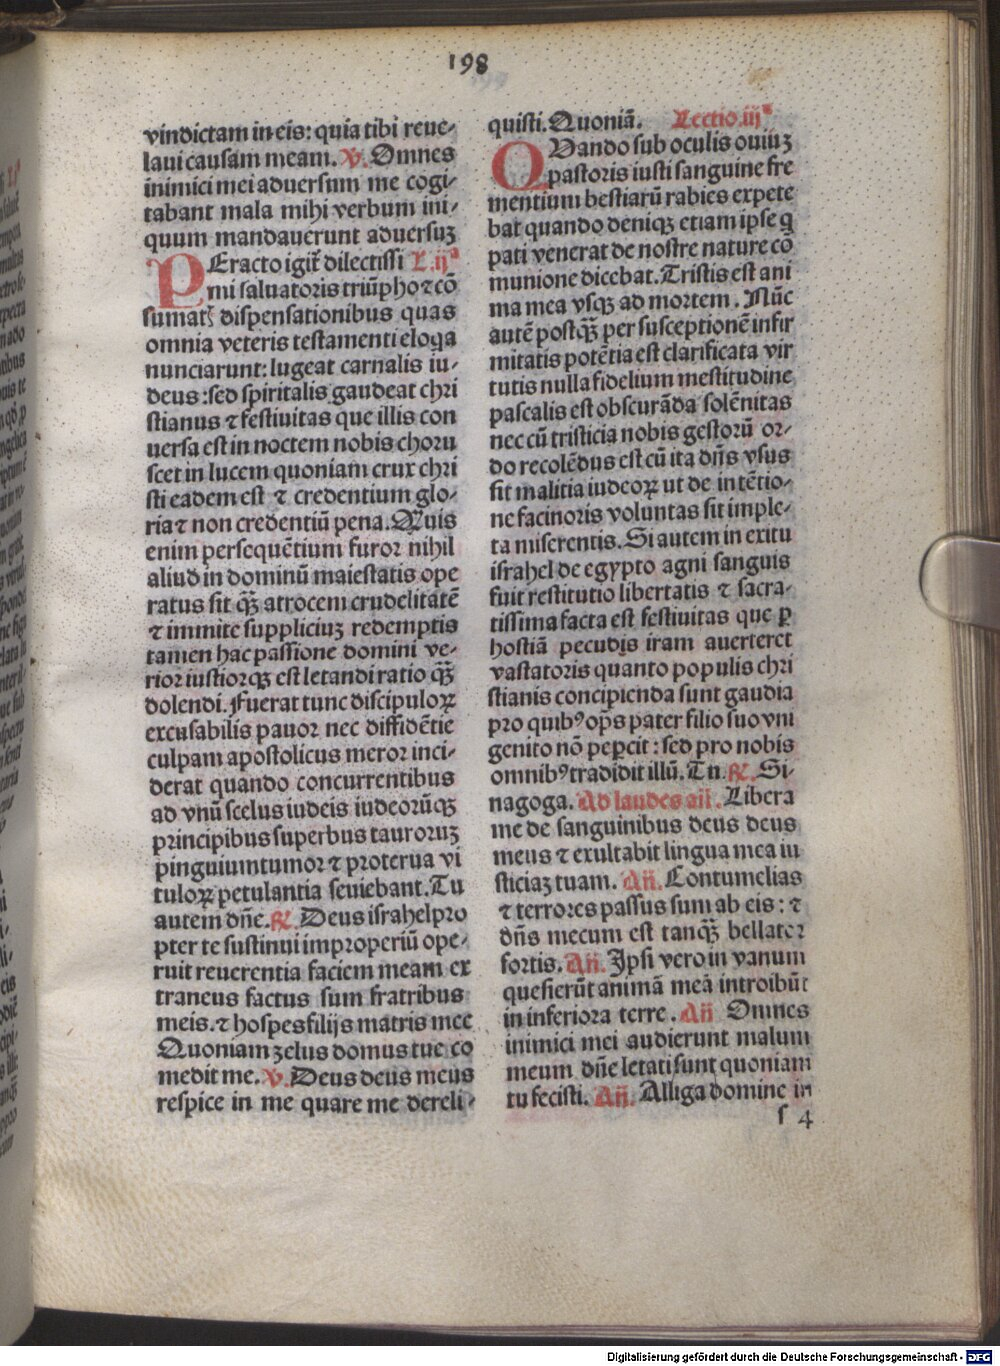 198
vindictam in eis: quia tibi reue⸗
laui causam meam. ℣. Omnes
inimici mei aduersum me cogi⸗
tabant mala mihi verbum ini⸗
quum mandauerunt aduersuꝫ
PEracto igit᷑ dilectissi L.ijᵃ
mi saluatoris triūpho ⁊ cō
sumatꝭ dispensationibus quas
omnia veteris testamenti eloqa
nunciarunt: lugeat carnalis iu⸗
deus: sed spiritalis gaudeat chri
stianus ⁊ festiuitas que illis con
uersa est in noctem nobis choru
scet in lucem quoniam crux chri
sti eadem est ⁊ credentium glo⸗
ria ⁊ non credentiū pena. Quis
enim persequētium furor nihil
aliud in dominū maiestatis ope
ratus sit qꝫ̄ atrocem crudelitatē
⁊ immite suppliciuꝫ redemptis
tamen hac passione domini ve⸗
rior iustiorqꝫ est letandi ratio qꝫ̄
dolendi. Fuerat tunc discipuloꝝ
excusabilis pauor nec diffidētie
culpam apostolicus meror inci⸗
derat quando concurrentibus
ad vnū scelus iudeis iudeorūqꝫ
principibus superbus tauroruꝫ
pinguium tumor ⁊ proterua vi
tuloꝝ petulantia seuiebant. Tu
autem dn̄e. ℟. Deus israhel pro
pter te sustinui improperiū ope⸗
ruit reuerentia faciem meam ex
traneus factus sum fratribus
meis. ⁊ hospes filijs matris mee
Quoniam zelus domus tue co
medit me. ℣. Deus deus meus
respice in me quare me dereli⸗
quisti. Quoniā. Lectio.iijᵃ
QUando sub oculis ouiuꝫ
pastoris iusti sanguine fre
mentium bestiarū rabies expete
bat quando deniqꝫ etiam ipse q
pati venerat de nostre nature cō
munione dicebat. Tristis est ani
ma mea vsqꝫ ad mortem. Nūc
autē postqꝫ̄ per susceptionē infir
mitatis potētia est clarificata vir
tutis nulla fidelium mestitudine
pascalis est obscurāda solēnitas
nec cū tristicia nobis gestorū or⸗
do recolēdus est cū ita dn̄s vsus
sit malitia iudeoꝝ ut de intētio⸗
ne facinoris voluntas sit imple⸗
ta miserentis. Si autem in exitu
israhel de egypto agni sanguis
fuit restitutio libertatis ⁊ sacra⸗
tissima facta est festiuitas que ꝑ
hostiā pecudis iram auerteret
vastatoris quanto populis chri
stianis concipienda sunt gaudia
pro quibꝰ op̄s pater filio suo vni
genito nō peꝑcit: sed pro nobis
omnibꝰ tradidit illū. Tu. ℟. Si⸗
nagoga. Ad laudes añ. Libera
me de sanguinibus deus deus
meus ⁊ exultabit lingua mea iu
sticiaꝫ tuam. Añ. Contumelias
⁊ terrores passus sum ab eis: ⁊
dn̄s mecum est tanqꝫ̄ bellator
fortis. Añ. Ipsi vero in vanum
quesierūt animā meā introibūt
in inferiora terre. Añ Omnes
inimici mei audierunt malum
meum dn̄e letati sunt quoniam
tu fecisti. Añ. Alliga domine in
ſ 4
Digitalisierung gefördert durch die Deutsche Forschungsgemeinschaft - DFG